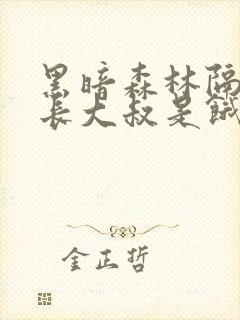 黑暗森林隔
长大叔是饿
金正哲